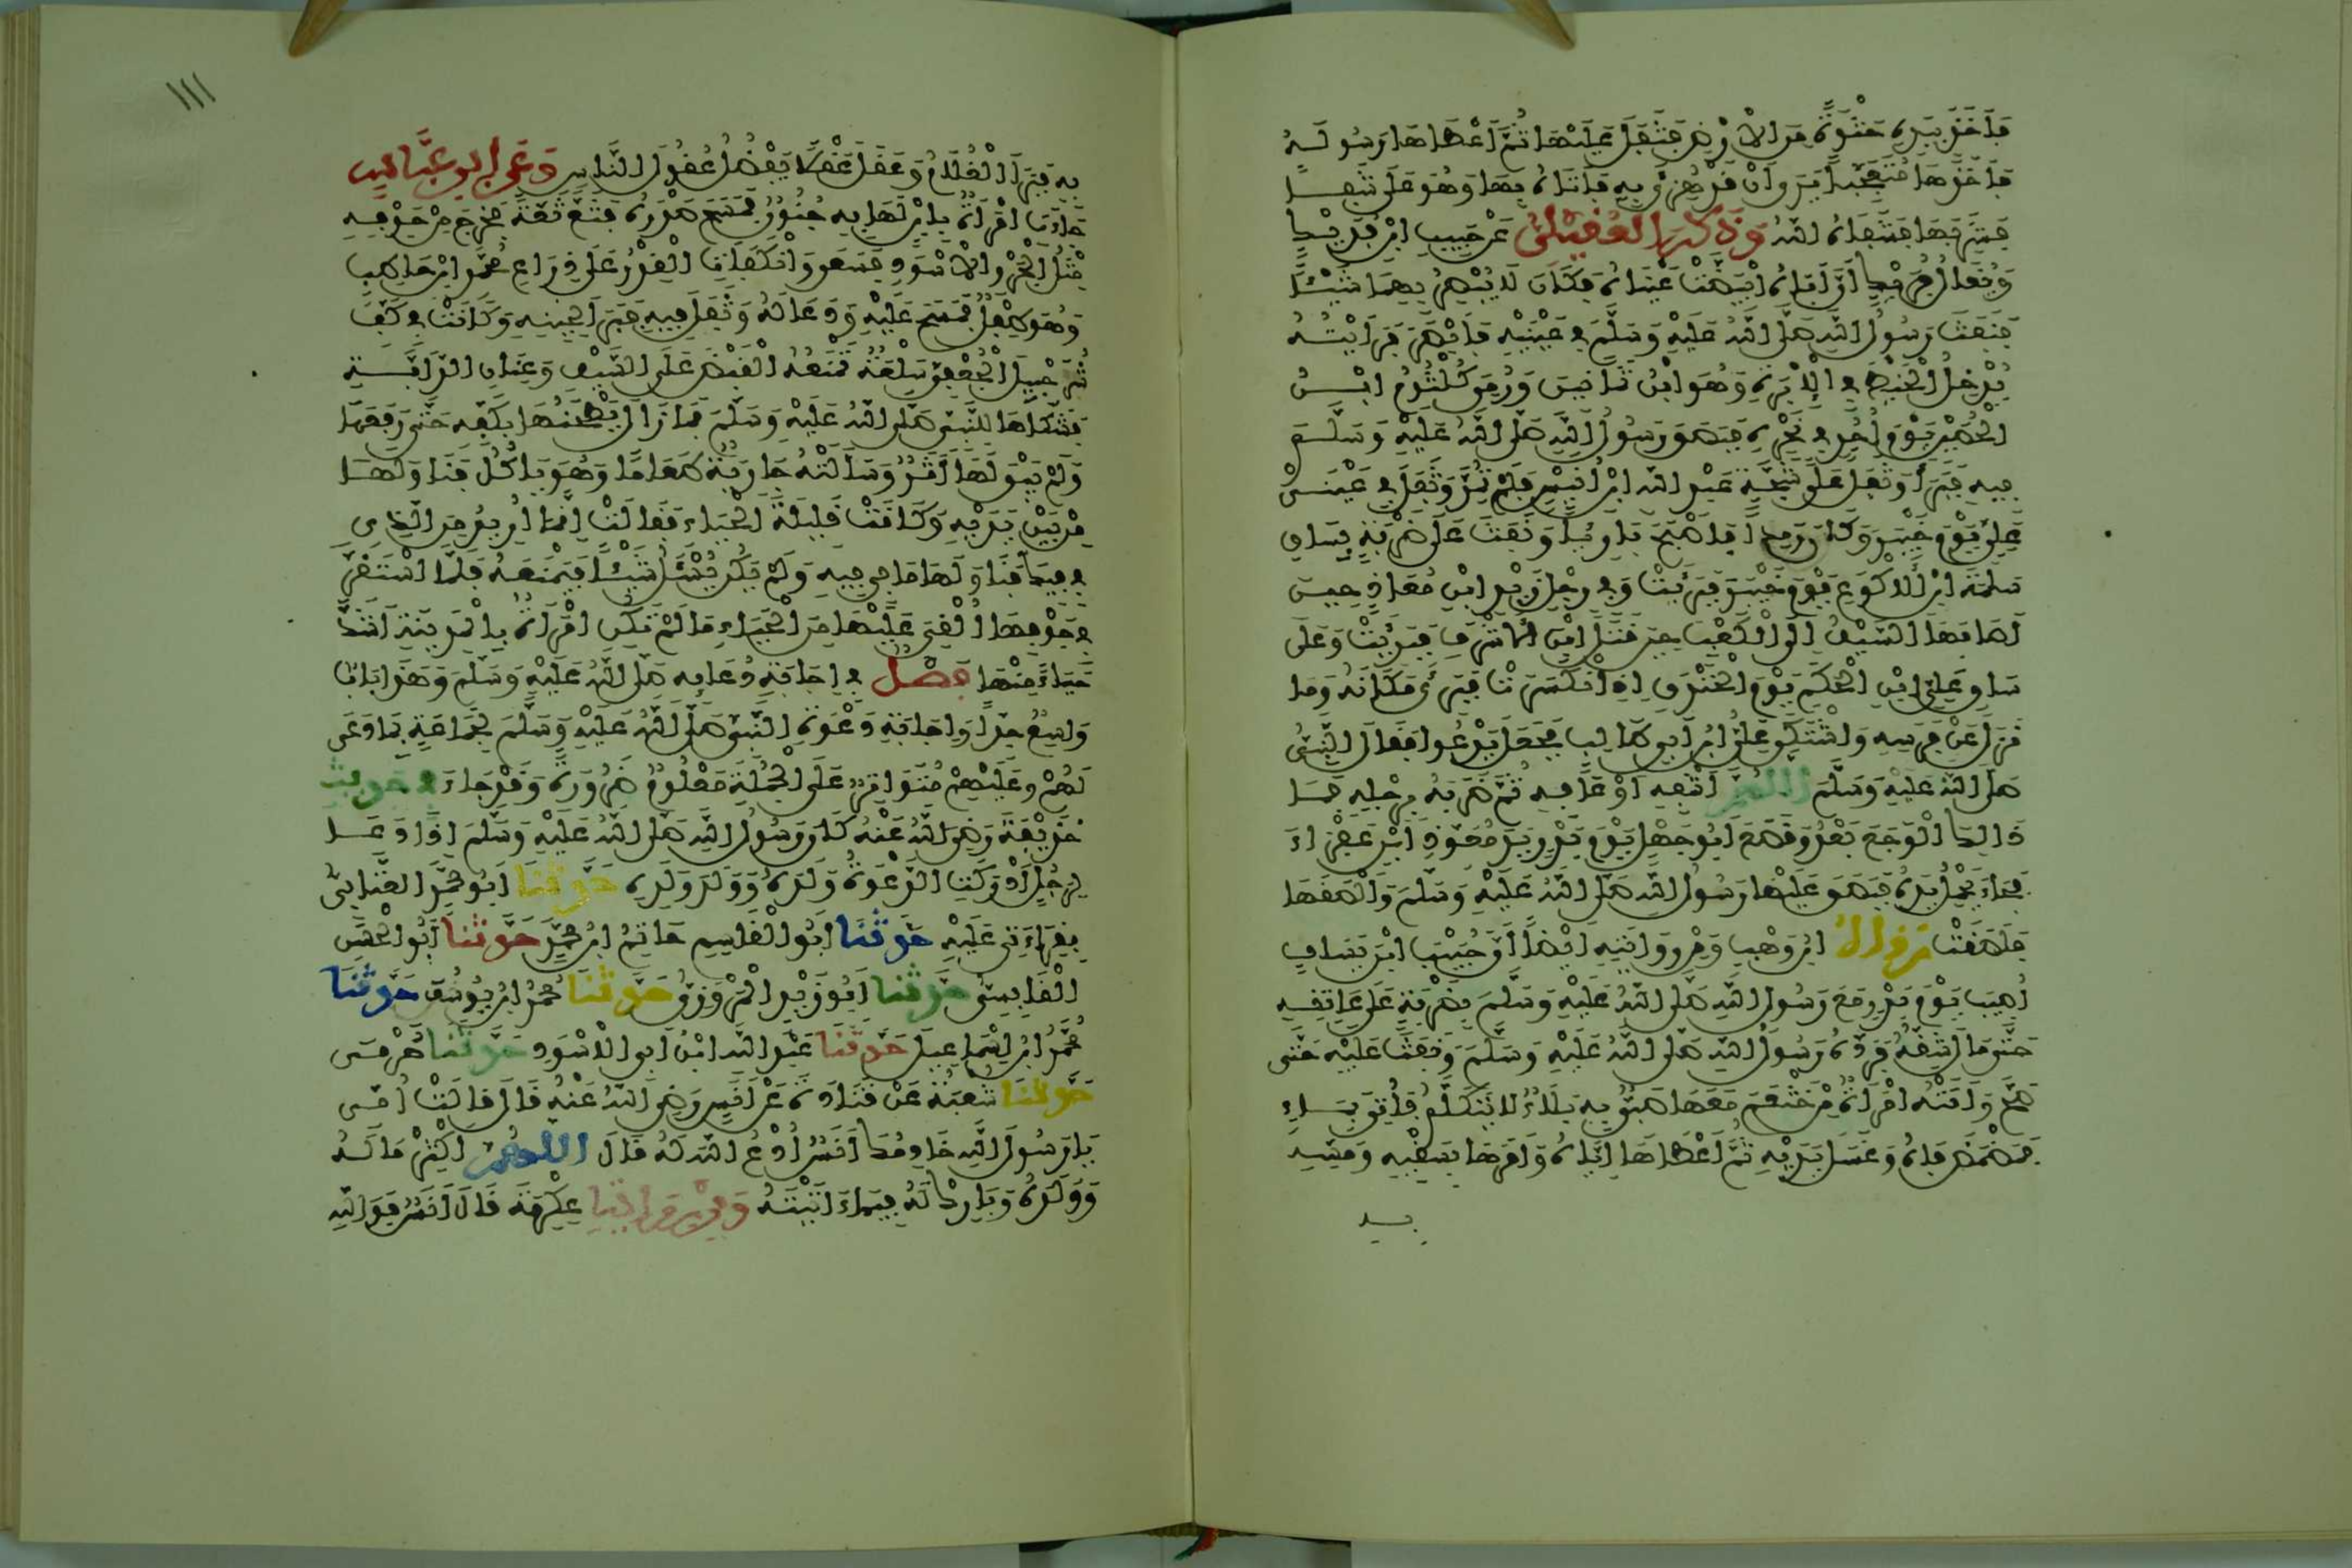 فأخذ بيده حثوة من الأرض فتفل عليها ثم أعطاها رسوله
فأخذها متعجبا يرى أن قد هزئ به فأتاه بها وهو على شفا
فشربها فشفاه الله وذكر العقيلي عن حبيب ابن فديك
ويقال فريك أن أباه ابيضت عيناه فكان لا يبصر بهما شيئا
فنفث رسول الله صلى الله عليه وسلم في عينيه فأبصر فرأيته
يدخل الخيط في الإبرة وهو ابن ثمانين ورمي كلثوم ابن
الحصين يوم أحد في نحره فبصق رسول الله صلى الله عليه وسلم
فيه فبرأ وتفل على شجة عبد الله ابن أنيس فلم تمد وتفل في عيني
علي يوم خيبر وكان رمدا فأصبح بارئا ونفث على ضربة بساق
سلمة ابن الأكوع يوم خيبر فبرئت وفي رجل زيد ابن معاذ حين
أصابها السيف إلى الكعب حين قتل ابن الأشرف فبرئت وعلى
ساق علي ابن الحكم يوم الخندق إذ انكسرت فبرئ مكانه وما
نزل عن فرسه واشتكى علي ابن أبي طالب فجعل يدعوا فقال النبي
صلى الله عليه وسلم اللهم اشفه أو عافه ثم ضربه برجله فما
ذالك الوجع بعد وقطع أبو جهل يوم بدر يد معوذ ابن عفراء
فجاء يحمل يده فبصق عليها رسول الله صلى الله عليه وسلم وألصقها
فلصقت رواه ابن وهب ومن روايته أيضا أن خبيب ابن يساف
أصيب يوم بدر مع رسول الله صلى الله عليه وسلم بضربة على عاتقه
حتى مال شقه فرده رسول الله صلى الله عليه وسلم ونفث عليه حتى
صح وأتته امرأة من خثعم معها صبي به بلاء لا يتكلم فأتي بماء
فمضمض فاه وغسل يديه ثم أعطاها إياه وأمرها بسقيه ومسه
به
١١١
به فبرأ الغلام وعقل عقلا يفضل عقول الناس وعن ابن عباس
جاءت امرأة بابن لها به جنون فمسح صدره فثع ثعة فخرج من جوفه
مثل الجرو الأسود فسعى وانكفأت القدر على ذراع محمد ابن حاطب
وهو طفل فمسح عليه ودعا له وتفل فيه فبرأ لحينه وكانت في كف
شرحبيل الجعفي سلعة تمنعه القبض على السيف وعنان الدابة
فشكاها للنبي صلى الله عليه وسلم فما زال يطحنها بكفه حتى رفعها
ولم يبق لها أثر وسألته جارية طعاما وهو يأكل فناولها
من بين يديه وكانت قليلة الحياء فقالت إنما أريد من الذي
في فيك فناولها ما في فيه ولم يكن يسئل شيئا فيمنعه فلما استقر
في جوفها ألقي عليها من الحياء ما لم تكن امرأة بالمدينة أشد
حياء منها فصل في إجابة دعائه صلى الله عليه وسلم وهذا باب
واسع جدا وإجابة دعوة النبي صلى الله عليه وسلم لجماعة بما دعى
لهم وعليهم متواتر على الجملة معلوم ضرورة وقد جاء في حديث
حذيفة رضي الله عنه كان رسول الله صلى الله عليه وسلم إذا دعا
لرجل أدركت الدعوة ولده وولد ولده حدثنا أبو محمد العتابي
بقراءتي عليه حدثنا أبو القاسم حاتم ابن محمد حدثنا أبو الحسن
القابسي حدثنا أبو زيد المروزي حدثنا محمد ابن يوسف حدثنا
محمد ابن إسماعيل حدثنا عبد الله ابن أبي الأسود حدثنا حرمي
حدثنا شعبة عن قتادة عن أنس رضي الله عنه قال قالت أمي
يا رسول الله خادمك أنس ادع الله له قال اللهم اكثر ماله
وولده وبارك له فيما آتيته ومن رواية عكرمة قال أنس فوالله